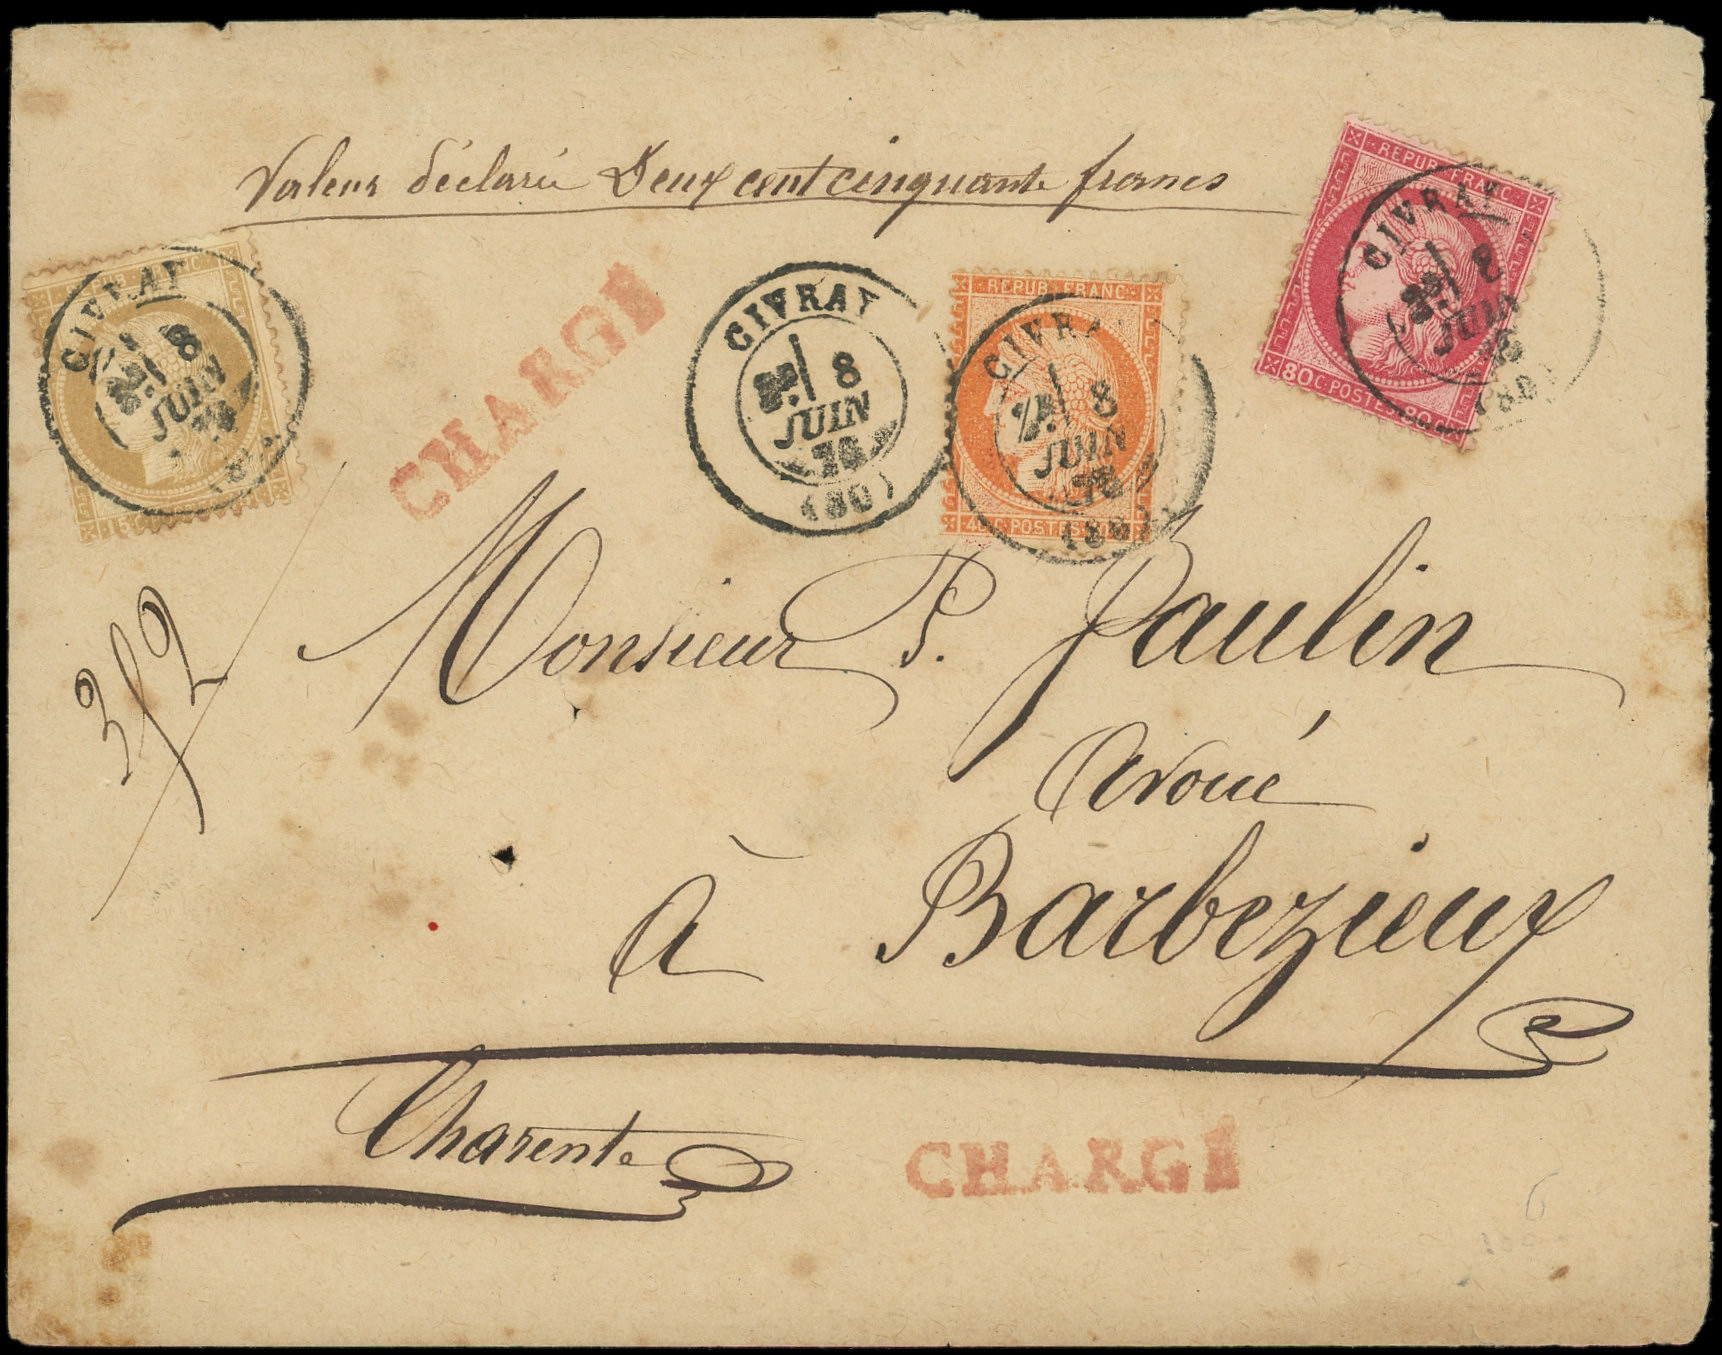 Valeur déclarée Deux cent cinquante francs
REPUB. FRANC.
80 C. POSTES 80
CIVRAY
8
JUIN
76
(80)
REPUB. FRANC.
40 C. POSTES
CIVRAY
8
JUIN
76
CIVRAY
8
JUIN
76
(80)
CIVRAY
8
JUIN
15 C.
CHARGÉ
Monsieur P. Paulin
Avoué
à Barbezieux
Charente
CHARGÉ
6